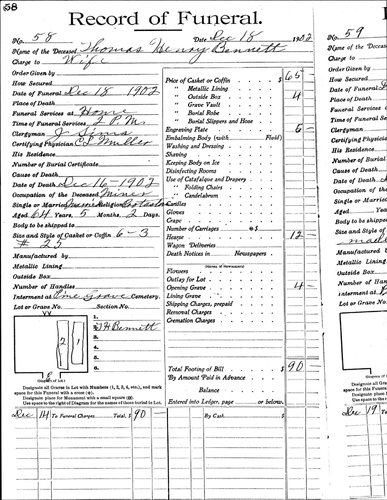 58
Record of Funeral.
No. 58 Date Dec 18 1902
Name of the Deceased Thomas Henry Bennett
Charge to Wife
Order Given by
How Secured
Date of Funeral Dec 18 1902
Place of Death
Funeral Services at Home
Time of Funeral Services 2 P.M.
Clergyman J Sims
Certifying Physician C. Muller
His Residence
Number of Burial Certificate
Cause of Death
Date of Death Dec 16 - 1902
Occupation of the Deceased Miner
Single or Married Religion
Aged 64 Years 5 Months 2 Days
Body to be shipped to
Size and Style of Casket or Coffin 6-3
# 25
Manufactured by
Metallic Lining
Outside Box
Number of Handles
Interment at Pine Grove Cemetery.
Lot or Grave No. Section No.
1.
2. T H Bennett
3.
4.
5.
6.
2 1
(Diagram of Lot.)
Price of Casket or Coffin $ 65
" Metallic Lining
" Outside Box 4
" Grave Vault
" Burial Robe
" Burial Slippers and Hose
Engraving Plate 5
Embalming Body (with Fluid)
Washing and Dressing
Shaving
Keeping Body on Ice
Disinfecting Rooms
Use of Catafalque and Drapery
" Folding Chairs
" Candelabrum
Candles
Gloves
Crape
Number of Carriages @ $
Hearse 12
Wagon Deliveries
Death Notices in Newspapers
(Names of Newspapers)
Flowers
Outlay for Lot
Opening Grave 4
Lining Grave
Shipping Charges, prepaid
Removal Charges
Cremation Charges
Total Footing of Bill $ 90
By Amount Paid in Advance
Balance
Entered into Ledger, page or below.
Designate all Graves in Lot with Numbers (1, 2, 3, 4, etc.), and mark
space for this Funeral with a cross (+).
Designate place of Monument with a small square (□).
Use space to the right of Diagram for the names of those buried in Lot.
Dec 14 To Funeral Charges Total, $ 90 By Cash $
No. 59
Name of the
Charge to
Order Given
How Secured
Place of Death
Dec 19